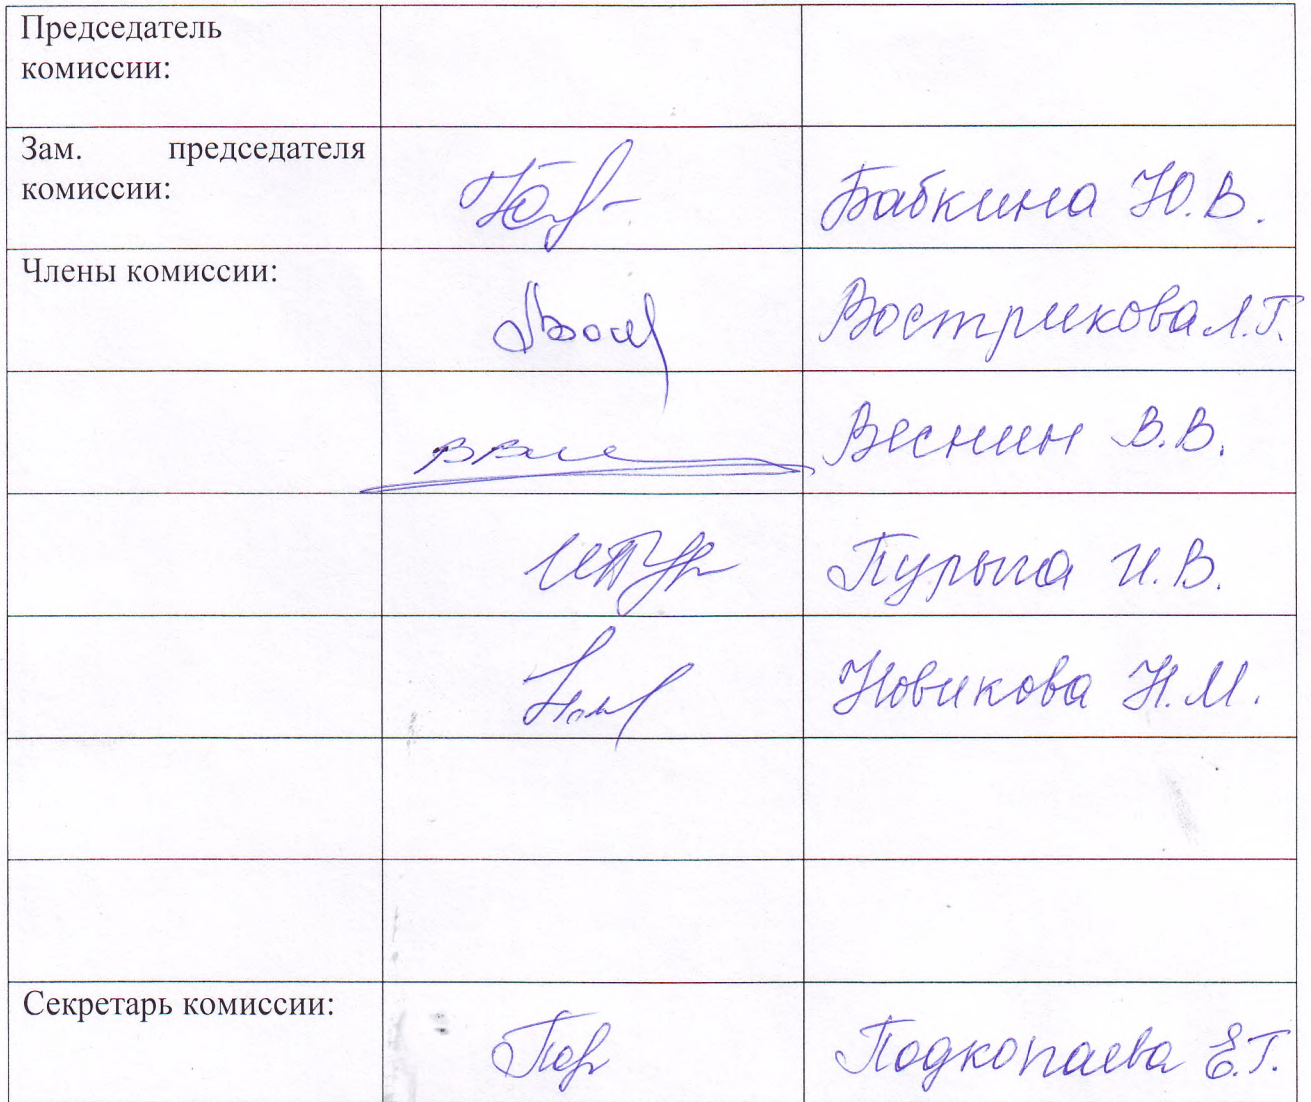 Председатель
комиссии:
Зам. председателя
комиссии:
Бабкина Ю.В.
Члены комиссии:
Вострикова Л.Г.
Веснин В.В.
Пурыга И.В.
Новикова Н.М.
Секретарь комиссии:
Подкопаева Е.Г.